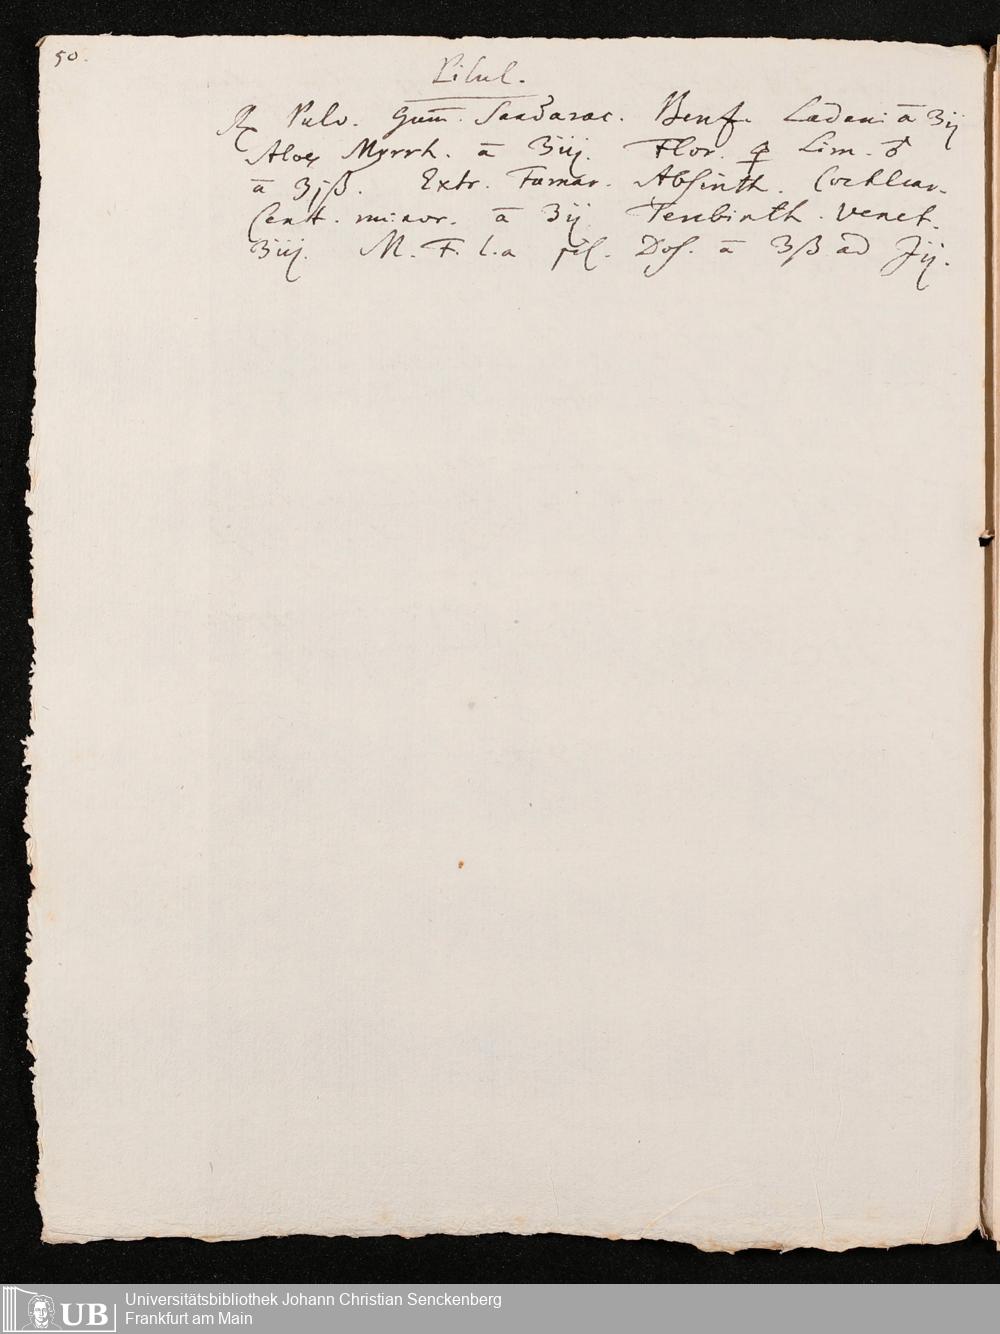 50.
Pilul.
℞ Pulv. Gum̅. Sandarac. Benz. Ladani a̅ ʒij
Aloes Myrrh. a̅ ʒiij. Flor. 🜍 Lim. ♂
a̅ ʒjß. Extr. Fumar. Absinth. Cochlear.
Cent. minor. a̅ ʒij Terebinth. Venet.
ʒiij. M. F. l. a pil. Dos. a̅ ʒß ad ʒij.
UB Universitätsbibliothek Johann Christian Senckenberg
Frankfurt am Main